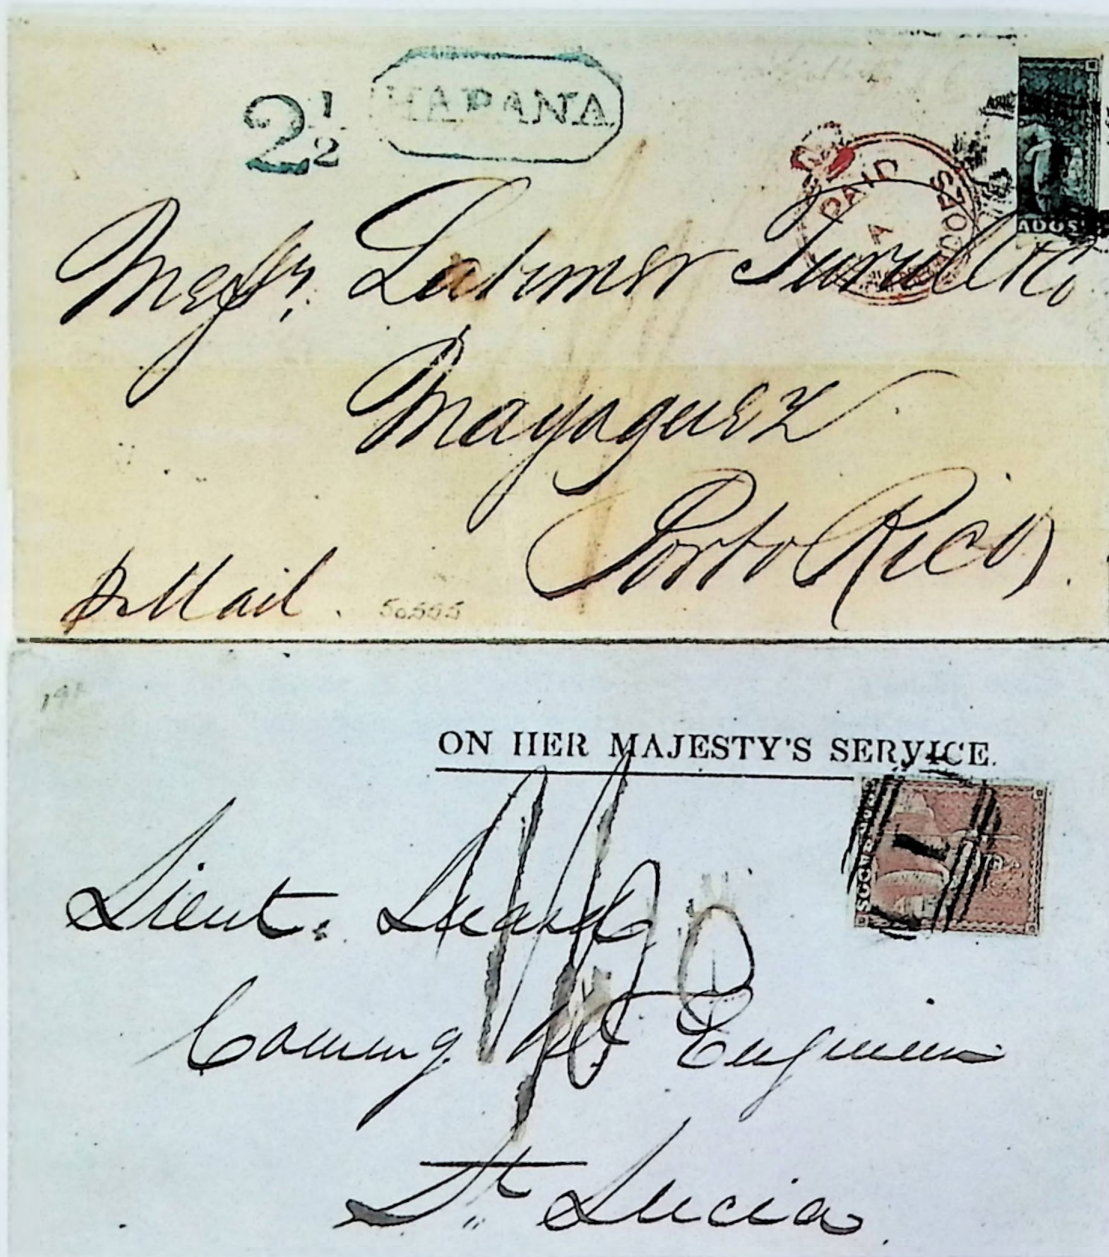 2½ HABANA
PAID
BARBADOES
ADOS
Messrs. Latimer Turull & Co
Mayaguez
Porto Rico
Pr Mail. 50555
ON HER MAJESTY'S SERVICE.
1
Lieut.
Commg. Rl Engineers
St. Lucia